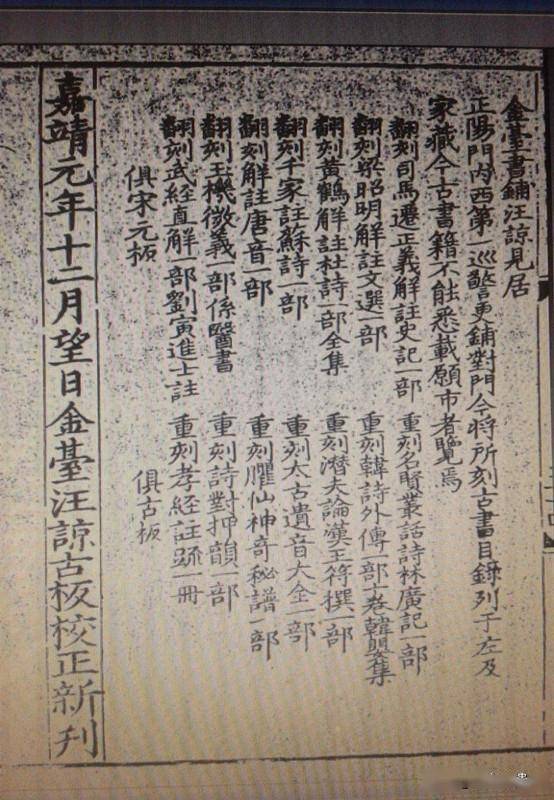 金臺書鋪汪諒見居
正陽門內西第一巡警更鋪對門今將所刻古書目錄列于左及
家藏今古書籍不能悉載願市者覽焉
翻刻司馬遷正義解註史記一部
重刻名賢叢話詩林廣記一部
翻刻梁昭明解註文選一部
重刻韓詩外傳一部十卷韓嬰集
翻刻黃鶴解註杜詩一部全集
重刻潛夫論漢王符撰一部
翻刻千家註蘇詩一部
重刻太古遺音大全一部
翻刻解註唐音一部
重刻臞仙神奇秘譜一部
翻刻玉機微義一部係醫書
重刻詩對押韻一部
翻刻武經直解一部劉寅進士註
重刻孝經註疏一冊
俱宋元板
俱古板
嘉靖元年十二月望日金臺汪諒古板校正新刋